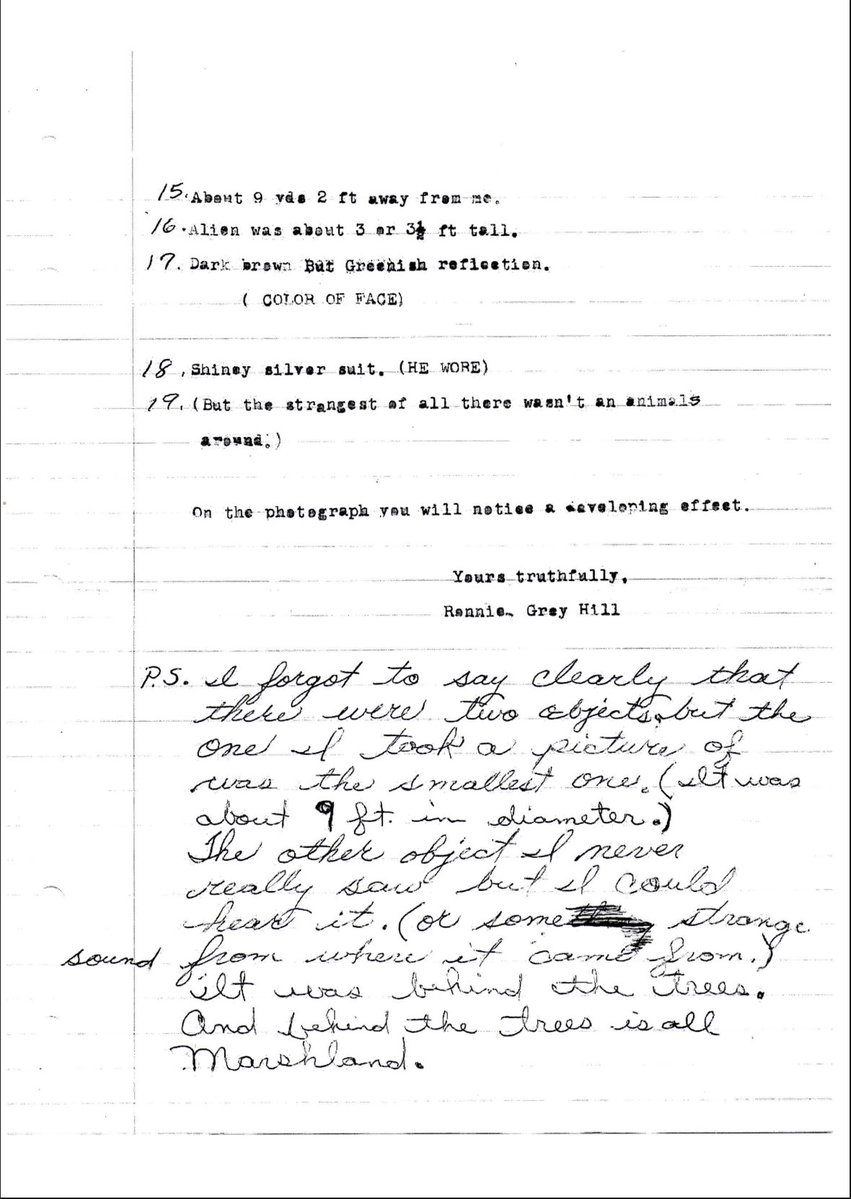 15. About 9 yds 2 ft away from me.
16. Alien was about 3 or 3½ ft tall.
17. Dark brown But Greenish reflection.
( COLOR OF FACE)
18. Shiney silver suit. (HE WORE)
19. (But the strangest of all there wasn't an animals
around.)
On the photograph you will notice a developing effect.
Yours truthfully,
Ronnie Grey Hill
P.S. I forgot to say clearly that
there were two objects, but the
one I took a picture of
was the smallest one. (It was
about 9 ft. in diameter.)
The other object I never
really saw but I could
hear it. (or some strange
sound from where it came from.)
It was behind the trees.
And behind the trees is all
Marshland.